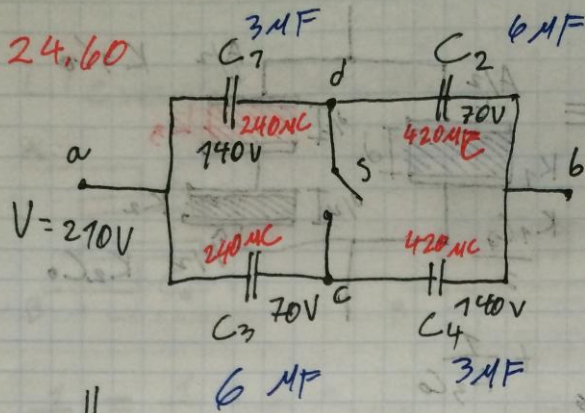 24.60
3μF
6μF
C1
d
C2
240μC
70V
140V
420μC
a
S
b
V = 210V
240μC
420μC
70V
c
140V
C3
C4
6 μF
3μF